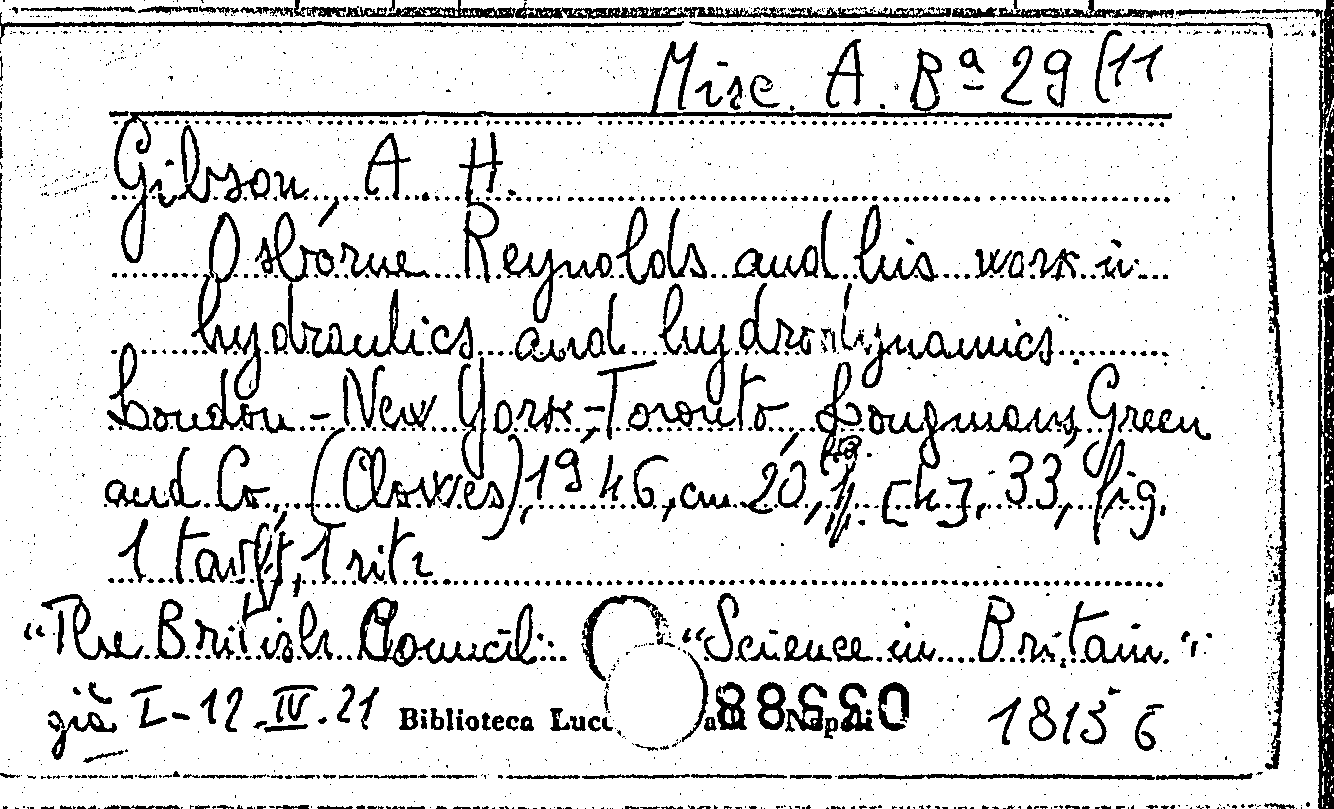 Misc. A. Bª 29 (11
Gibson, A. H.
Osborne Reynolds and his work in
hydraulics and hydrodynamics.
London - New York - Toronto, Longmans, Green
and Co, (Clowes), 1946, cm 20, [4], 33, fig.
1 tav, 1 ritr
"The British Council: "Science in Britain".
già I - 12. IV. 21 Biblioteca Napoli 18156